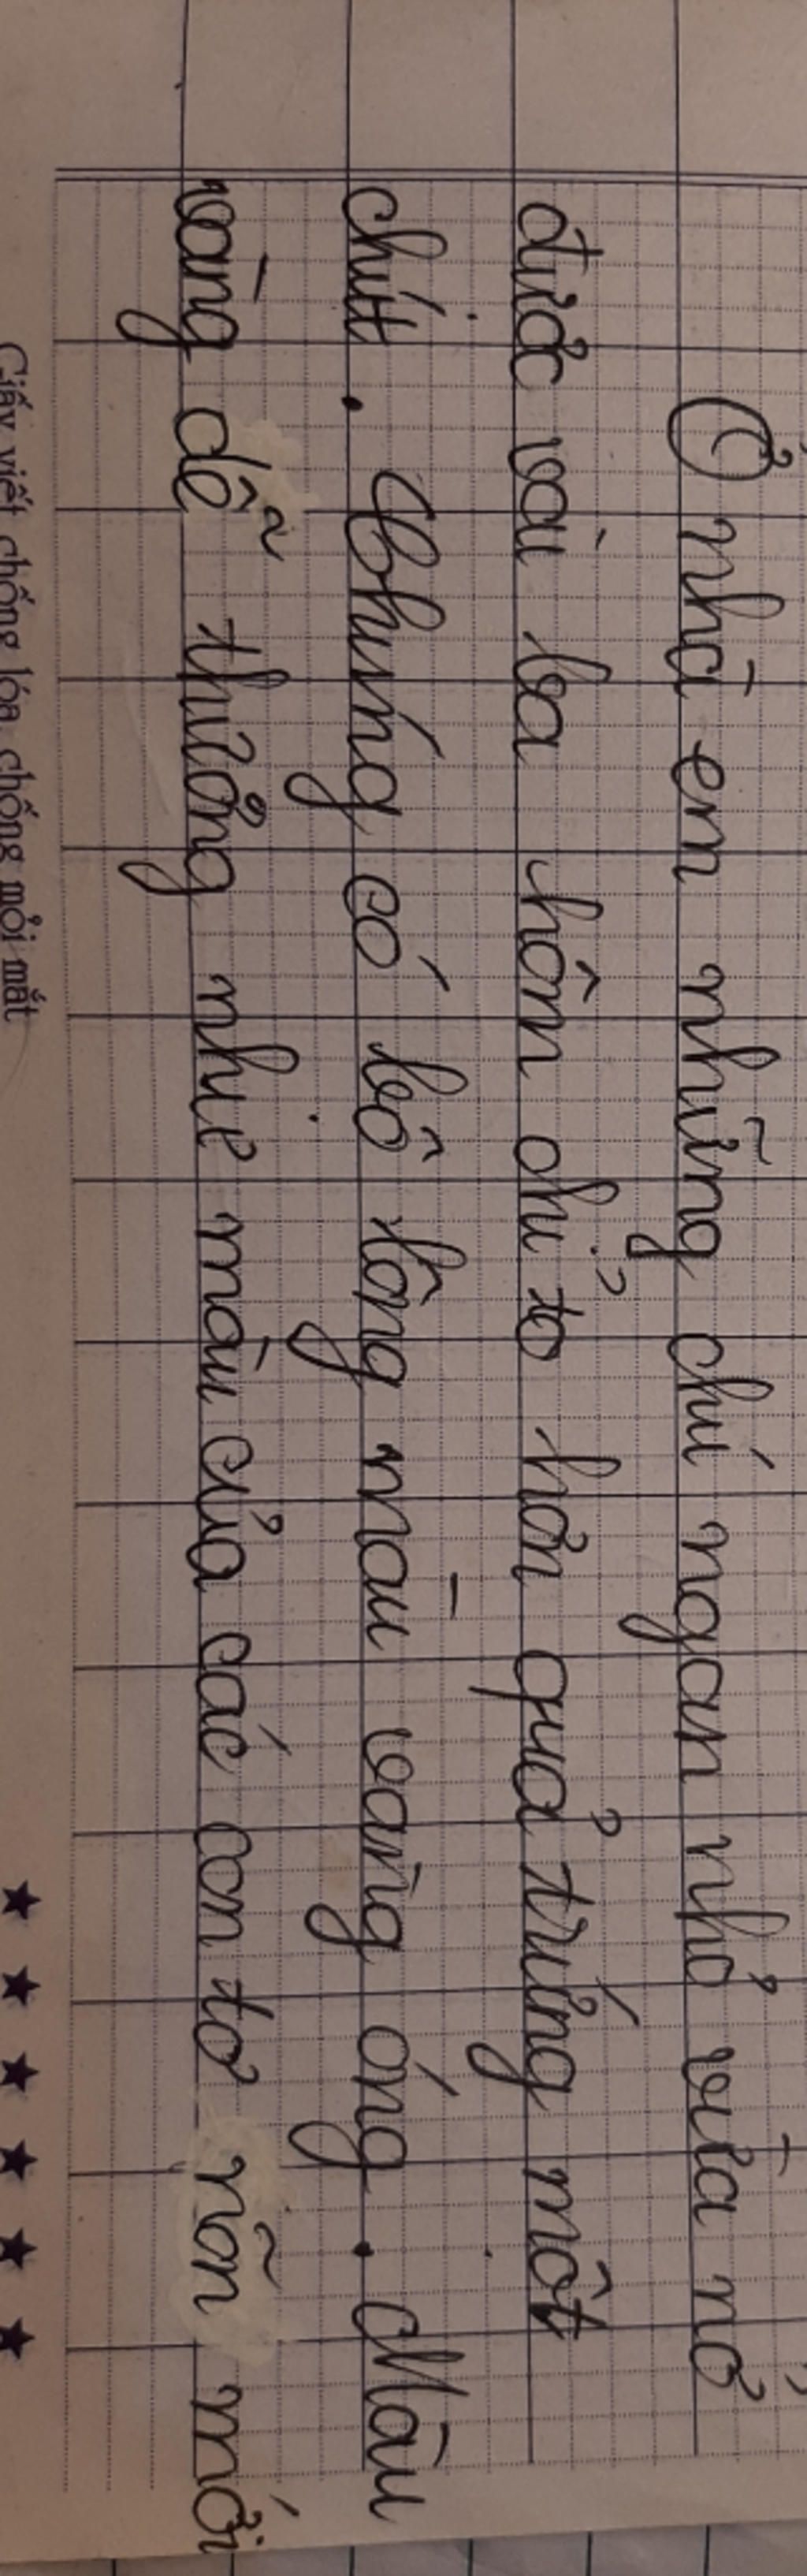 Ở nhà em những chú ngan nhỏ vừa nở
được vài ba hôm chỉ to hơn quả trứng một
chút. Chúng có bộ lông màu vàng óng. Màu
vàng dễ thương như màu của các con tơ nõn mới
Giấy viết chống lóa chống mỏi mắt